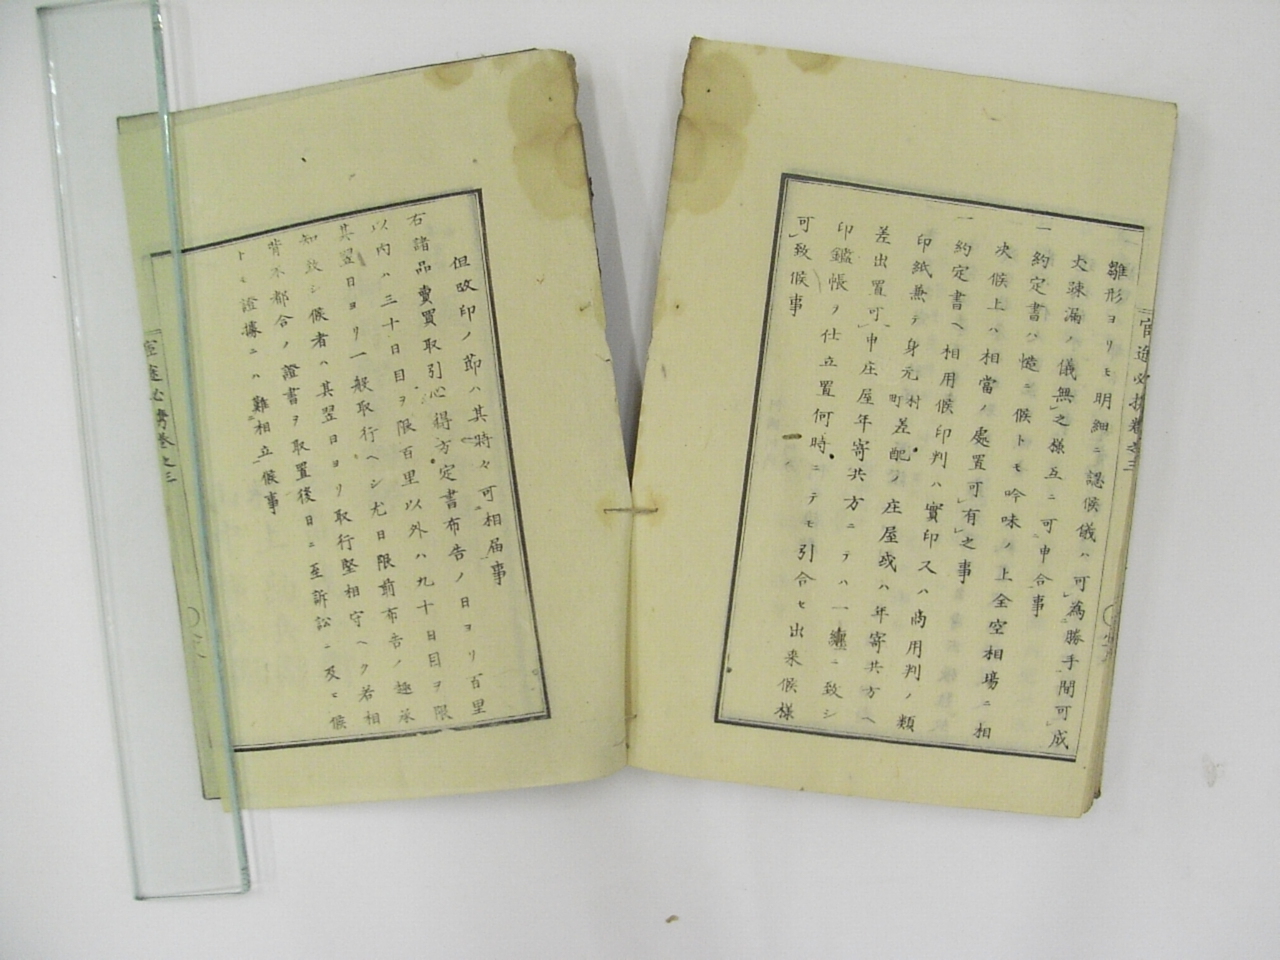 雛形ヨリモ明細ニ認候儀ハ可為勝手間可成
丈疎漏ノ儀無之様互ニ可申合事
一約定書ハ慥ニ候トモ吟味ノ上全空相場ニ相
决候上ハ相當ノ處置可有之事
一約定書ヘ相用候印判ハ實印又ハ商用判ノ類
印紙兼テ身元村町差配ノ庄屋或ハ年寄共方ヘ
差出置可申庄屋年寄共方ニテハ一纏ニ致シ
印鑑帳ヲ仕立置何時ニテモ引合セ出来候様
可致候事
但改印ノ節ハ其時々可相届事
右諸品賣買取引心得方定書布告ノ日ヨリ百里
以内ハ三十日目ヲ限百里以外ハ九十日目ヲ限
其翌日ヨリ一般取行ヘシ尤日限前布告ノ趣承
知致シ候者ハ其翌日ヨリ取行堅相守ヘク若相
背不都合ノ證書ヲ取置後日ニ至訴訟ニ及ヒ候
トモ證據ニハ難相立候事